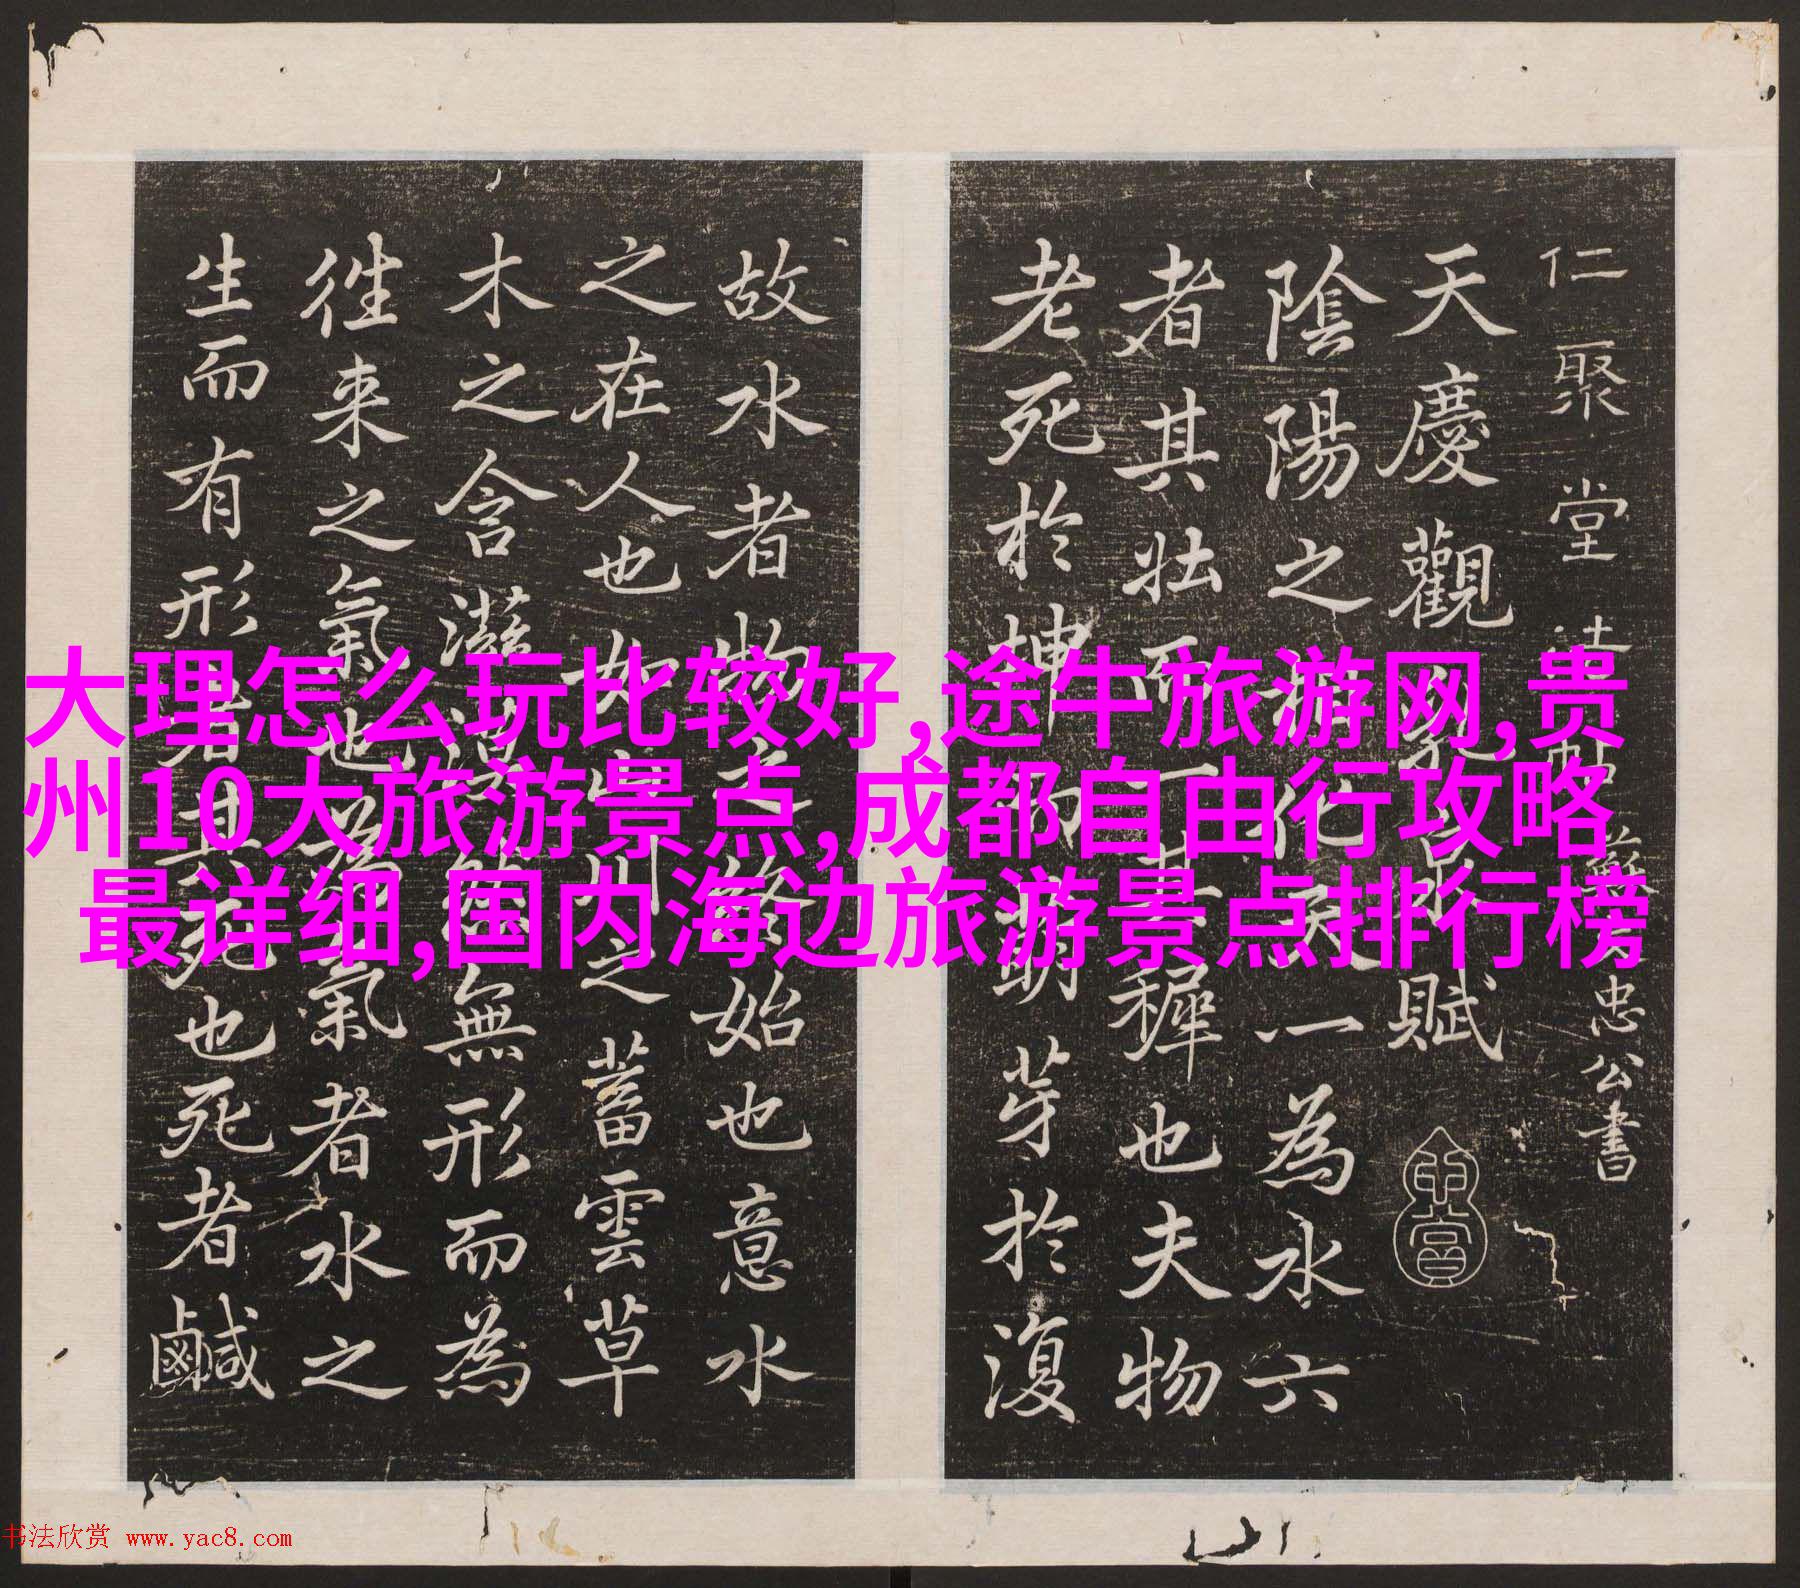 大理怎么玩比较好,途牛旅游网,贵
州10大旅游景点,成都自由行攻略
最详细,国内海边旅游景点排行榜
仁聚堂法帖 蘇文忠公書
天慶觀乳泉賦
陰陽之相化天一為水六
者其壮而一者其穉也夫物
老死於坤而萌芽於復
故水者物之終始也意水
之在人也如山川之蓄雲草
木之含滋漠然無形而為
往来之氣也為氣者水之
生而有形者其死也死者鹹
书法欣赏 www.yac8.com